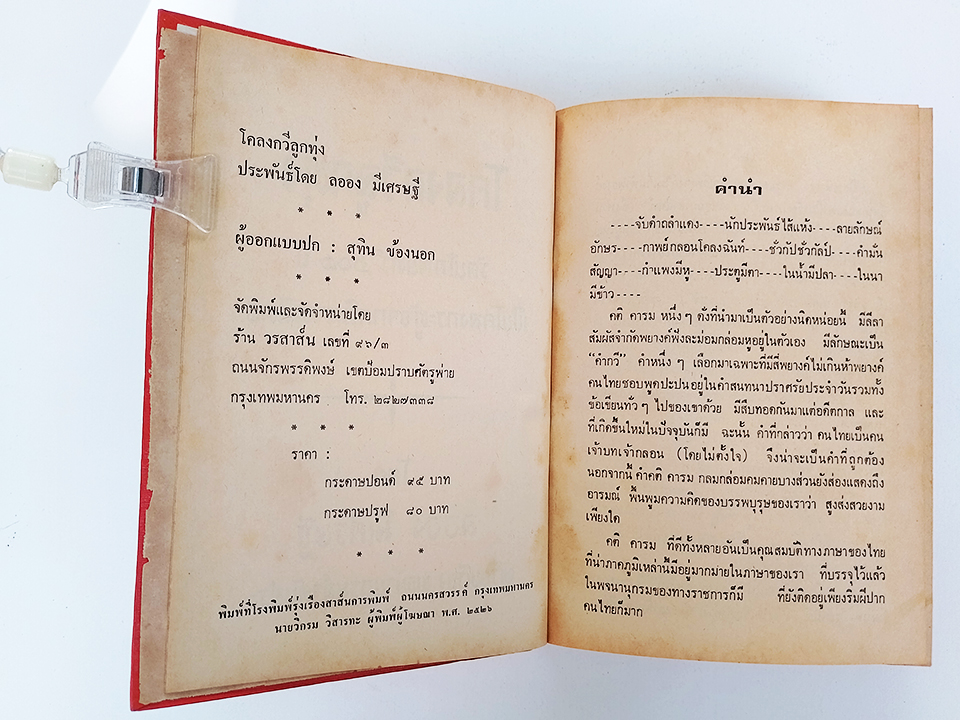 โคลงกวีลูกทุ่ง
ประพันธ์โดย ลออง มีเศรษฐี
* * *
ผู้ออกแบบปก : สุทิน ข้องนอก
* * *
จัดพิมพ์และจัดจำหน่ายโดย
ร้าน วรสาส์น เลขที่ ๙๖/๓
ถนนจักรพรรดิพงษ์ เขตป้อมปราบศัตรูพ่าย
กรุงเทพมหานคร โทร. ๒๘๒๗๓๓๘
* * *
ราคา :
กระดาษปอนด์ ๙๕ บาท
กระดาษปรูฟ ๘๐ บาท
* * *
พิมพ์ที่โรงพิมพ์รุ่งเรืองสาส์นการพิมพ์ ถนนนครสวรรค์ กรุงเทพมหานคร
นายวิกรม วิสารทะ ผู้พิมพ์ผู้โฆษณา พ.ศ. ๒๕๒๖
คำนำ
----จับคำถลำแคง----นักประพันธ์ไส้แห้ง----ลายลักษณ์
อักษร----กาพย์กลอนโคลงฉันท์----ชั่วกัปชั่วกัลป์----คำมั่น
สัญญา----กำแพงมีหู----ประตูมีตา----ในน้ำมีปลา----ในนา
มีข้าว----
คติ คารม หนึ่ง ๆ ดั่งที่นำมาเป็นตัวอย่างนิดหน่อยนี้ มีลีลา
สัมผัสจำกัดพยางค์ฟังละม่อมกล่อมหูอยู่ในตัวเอง มีลักษณะเป็น
“คำกวี” คำหนึ่ง ๆ เลือกมาเฉพาะที่มีสี่พยางค์ไม่เกินห้าพยางค์
คนไทยชอบพูดปะปนอยู่ในคำสนทนาปราศรัยประจำวันรวมทั้ง
ข้อเขียนทั่ว ๆ ไปของเขาด้วย มีสืบทอดกันมาแต่อดีตกาล และ
ที่เกิดขึ้นใหม่ในปัจจุบันก็มี ฉะนั้น คำที่กล่าวว่า คนไทยเป็นคน
เจ้าบทเจ้ากลอน (โดยไม่ตั้งใจ) จึงน่าจะเป็นคำที่ถูกต้อง
นอกจากนี้ คำคติ คารม กลมกล่อมคมคายบางส่วนยังส่องแสดงถึง
อารมณ์ พื้นพูมความคิดของบรรพบุรุษของเราว่า สูงส่งสวยงาม
เพียงใด
คติ คารม ที่ดีทั้งหลายอันเป็นคุณสมบัติทางภาษาของไทย
ที่น่าภาคภูมิเหล่านี้มีอยู่มากมายในภาษาของเรา ที่บรรจุไว้แล้ว
ในพจนานุกรมของทางราชการก็มี ที่ยังติดอยู่เพียงริมฝีปาก
คนไทยก็มาก